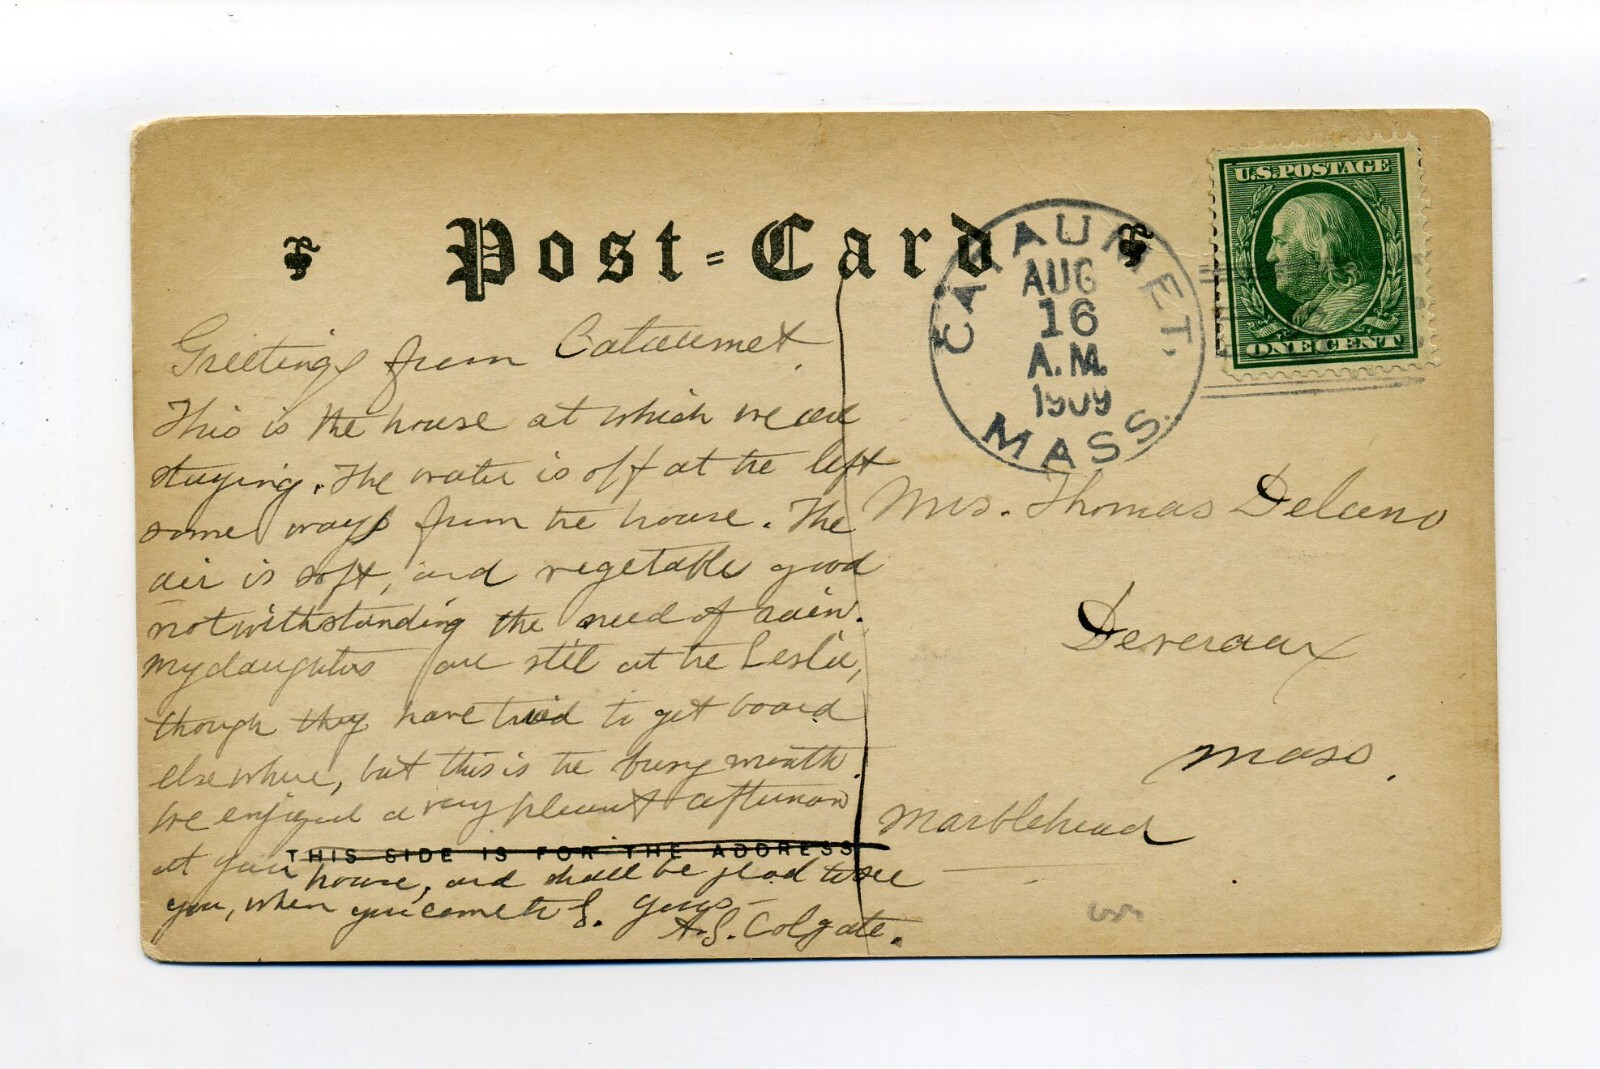 Post=Card
CATAUMET.
AUG
16
A.M.
1909
MASS.
U.S.POSTAGE
ONE CENT
Greetings from Cataumet.
This is the house at which we are
staying. The water is off at the left
some ways from the house. The
air is soft, and vegetables good
notwithstanding the need of rain.
My daughters are still at the Leslie,
though they have tried to get board
elsewhere, but this is the busy month.
We enjoyed a very pleasant afternoon
THIS SIDE IS FOR THE ADDRESS
at your house, and shall be glad to see
you, when you come to S. Yours—
A.S. Colgate.
Mrs. Thomas Delano
Devereaux
Mass.
Marblehead